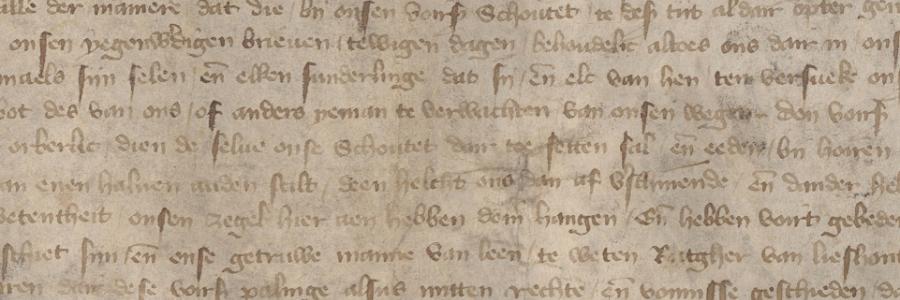 alle der maniere dat die bn̄ onsen vorß Schoutet te deß tiit aldair opter
onsen yegenwerdigen brieven tewigen dagen behoudelic altoes ons dair in ons
maels siin selen en̄ elken sunderlinge dat sij en̄ elc van hen ten versueke on
bot des van ons of anders yeman te verwachten van onsen wegen den vorß
orberlic dien de selve onse Schoutet dair toe setten sal en̄ eeden bn̄ horen
an enen halven auden scilt deen helcht ons dair af vscinende en̄ dander hel
wetentheit onsen zegel hier aen hebben doin hangen En̄ hebben voirt gebeden
siin en̄ onse getruwe manne van leen te weten Rutgher van lieshout
dair dese vorß palinge alsus mitten rechte en̄ vonnisse geschieden